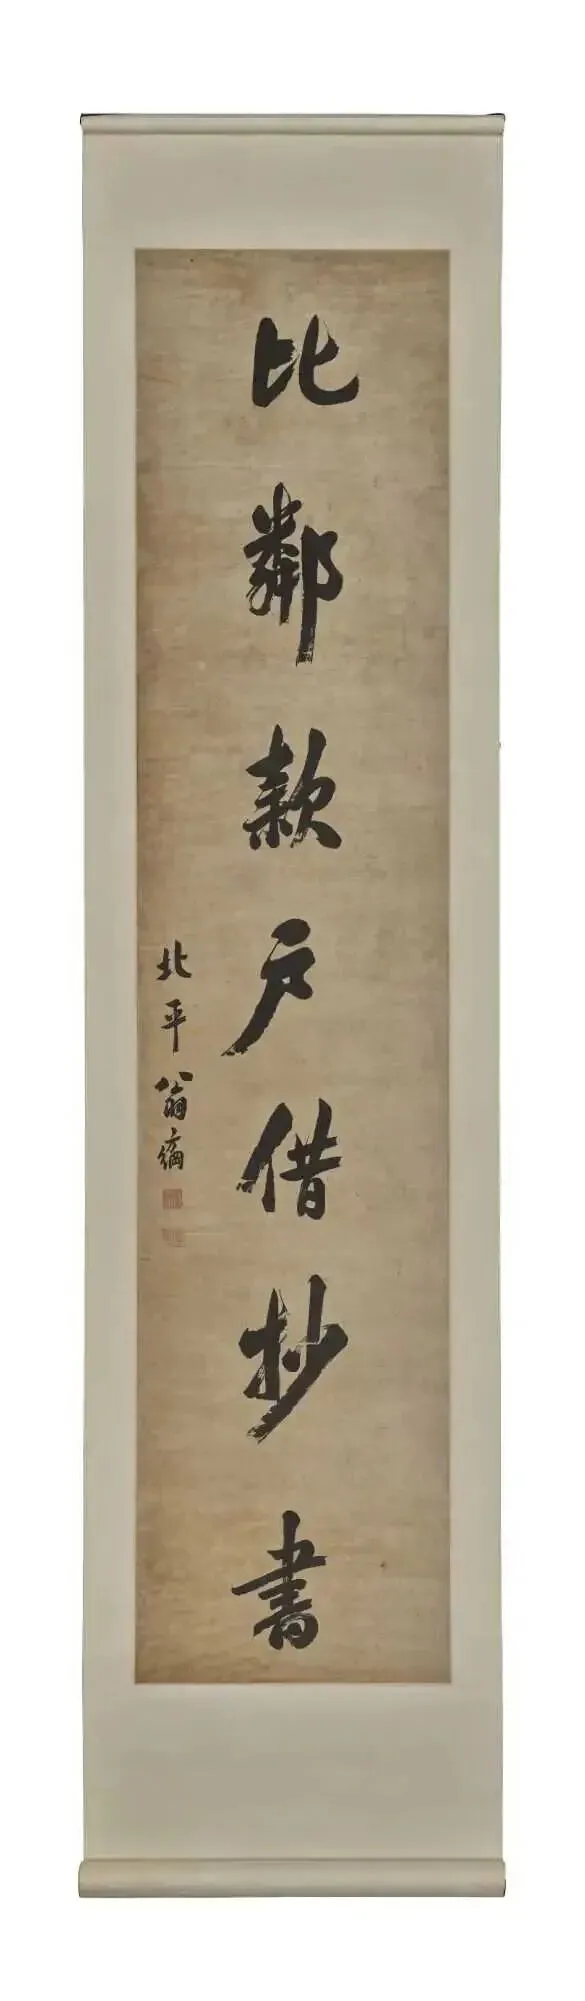 比鄰款户借抄書
北平翁方綱